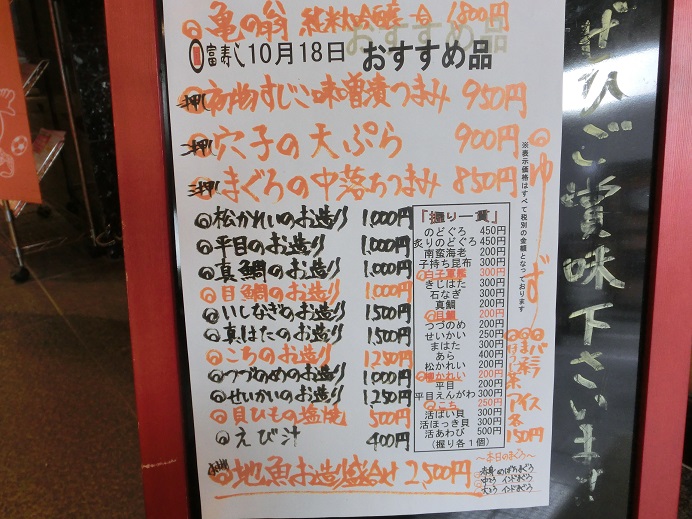 亀の翁 純米大吟醸 一合 1,800円
富寿し 10月18日 おすすめ品
一押し 初物すじこ味噌漬つまみ 950円
二押し 穴子の天ぷら 900円
三押し まぐろの中落ちつまみ 850円
松かれいのお造り 1,000円
平目のお造り 1,000円
真鯛のお造り 1,000円
目鯛のお造り 1,000円
いしなぎのお造り 1,500円
真はたのお造り 1,500円
こちのお造り 1,250円
つづのめのお造り 1,000円
せいかいのお造り 1,250円
貝ひもの塩焼 500円
えび汁 400円
地魚お造り盛合せ 2,500円
『握り一貫』
のどぐろ 450円
炙りのどぐろ 450円
南蛮海老 200円
子持ち昆布 300円
白子軍艦 300円
きじはた 300円
石なぎ 300円
真鯛 200円
目鯛 200円
つづのめ 200円
せいかい 250円
まはた 300円
あら 400円
松かれい 200円
200円
平目 200円
平目えんがわ 300円
こち 250円
活ばい貝 300円
活ほっき貝 300円
活あわび 500円
(握り各1個)
※表示価格はすべて税別の金額となっております
ゆず
バニラ
まっ茶
ほうじ茶
アイス
各
150円
~本日のまぐろ~
本身 めばちまぐろ
中とろ インドまぐろ
大とろ インドまぐろ
ぜひご賞味下さいます